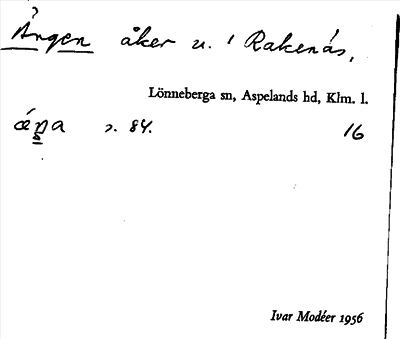 Ängen åker u. Rakenäs,
Lönneberga sn, Aspelands hd, Klm. l.
s. 84. 16
Ivar Modéer 1956